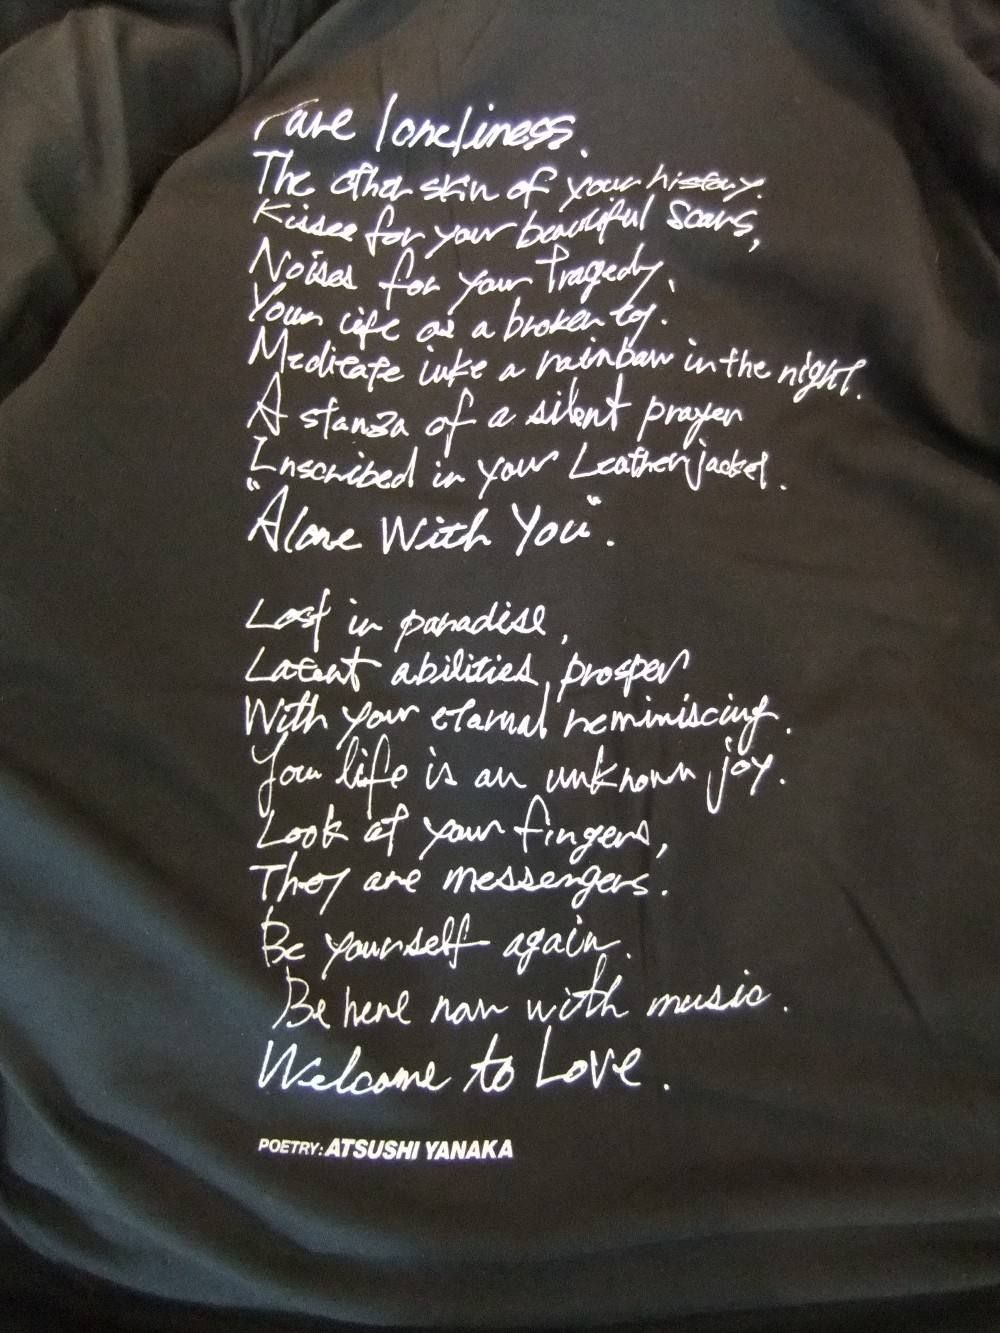 loneliness.
The other skin of your history.
Kisses for your beautiful Scars,
Noises for your Tragedy.
Your life as a broken toy.
Meditate like a rainbow in the night.
A stanza of a silent prayer
Inscribed in your Leather jacket.
"Alone With You".
Lost in paradise,
Latent abilities prosper
With your eternal reminiscing.
Your life is an unknown joy.
Look at your fingers,
They are messengers.
Be yourself again.
Be here now with music.
Welcome to Love.
POETRY: ATSUSHI YANAKA